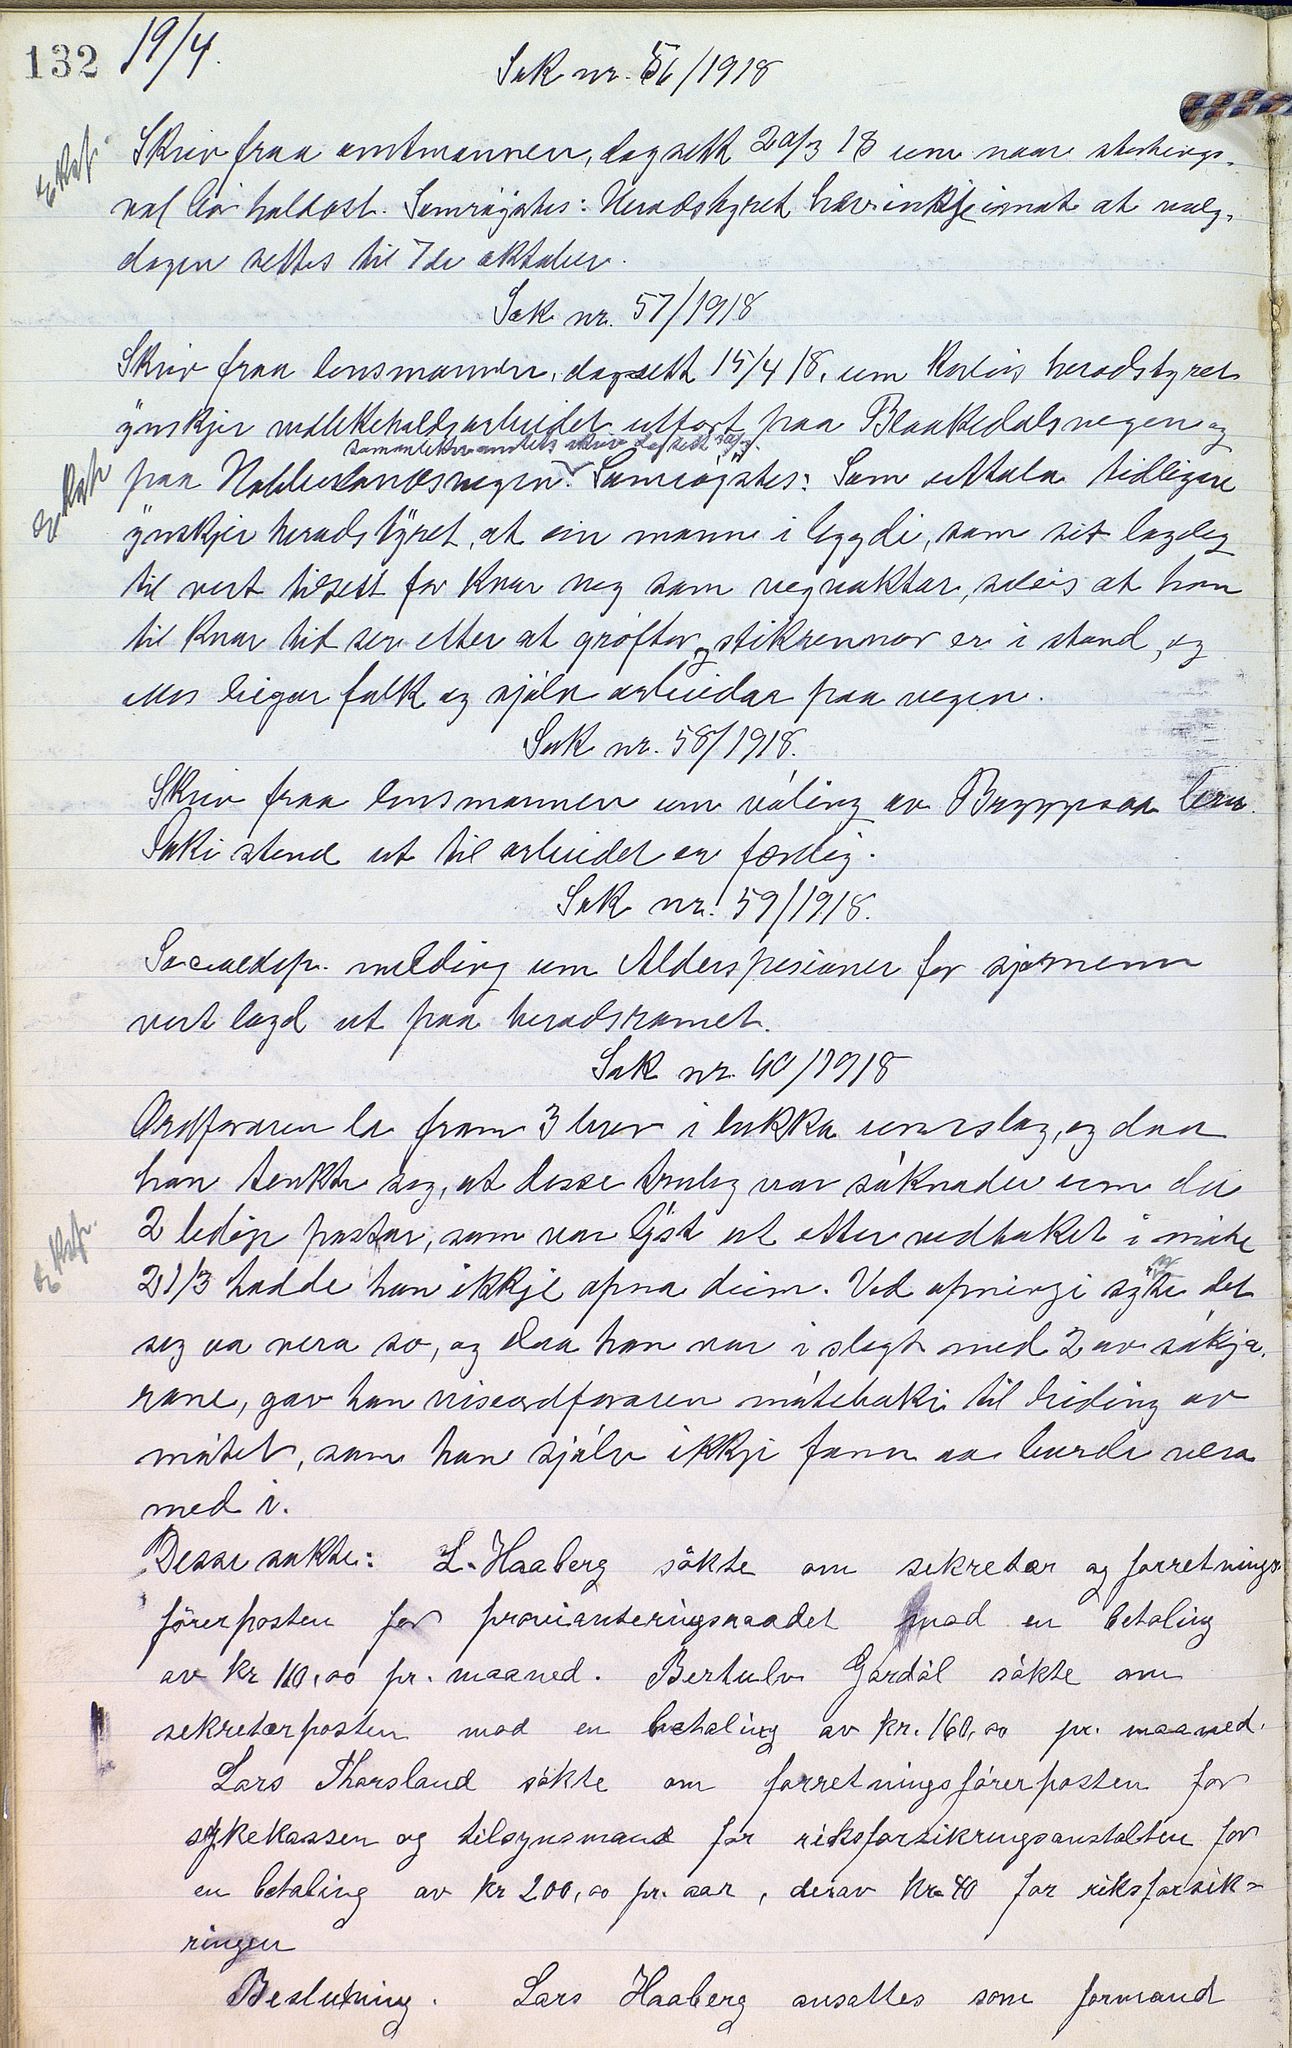 132 19/4.
Sak nr. 56/1918
Eksp.
Skriv fraa amtmannen, dagsett 20/3 18 um naar stortings-
val bör haldast. Samröystes: Heradstyret hev inkje imot at valg-
dagen settes til 7de oktober.
Sak nr. 57/1918
Skriv fraa lensmannen, dagsett 15/4 18, um korleis heradstyret
ynskjer vedlikehaldsarbeidet utfort paa Blaakedalsvegen og
samanlikn amtets skriv dagsett
Eksp.
paa Nattlandsvegen. Samröystes: Som uttala tidlegare
ynskjer heradstyret, at ein mann i bygdi, som sit lagleg
til vert tilsett for kvar veg som vegvaktar, soleis at han
til kvar tid ser etter at gröftor og stikrennor er i stand, og
elles leigar folk og sjölv arbeidar paa vegen.
Sak nr. 58/1918.
Skriv fraa lensmannen um völing av bru.
Saki stend ut til arbeidet er ferdig.
Sak nr. 59/1918.
Socialdep. melding um Alderspesioner for sjömenn
vert lagd ut paa heradsromet.
Sak nr. 60/1918
Ordforaren la fram 3 brev i lukka umslag, og daa
han tenkte seg, at desse truleg var söknader um dei
Eksp.
2 ledige postar, som var lyst ut etter vedtaket i möte
21/3 hadde han ikkje opna deim. Ved opningi synte det
seg aa vera so, og daa han var i slegt med 2 av sökja-
rane, gav han viseordforaren möteboki til leiding av
mötet, som han sjölv ikkje fann aa burde vera
med i.
Desse sökte: L. Haaberg sökte om sekretær og forretnings-
förerposten for provianteringsraadet mod en betaling
av kr 110,00 pr. maaned. Bertulv Gardöl sökte om
sekretærposten mod en betaling av kr. 160,00 pr. maaned.
Lars Thorsland sökte om forretningsförerposten for
sykekassen og tilsynsmand for riksforsikringsanstalten for
en betaling av kr 200,00 pr. aar, derav kr 40 for riksforsik-
ringen
Beslutning. Lars Haaberg ansattes som formand